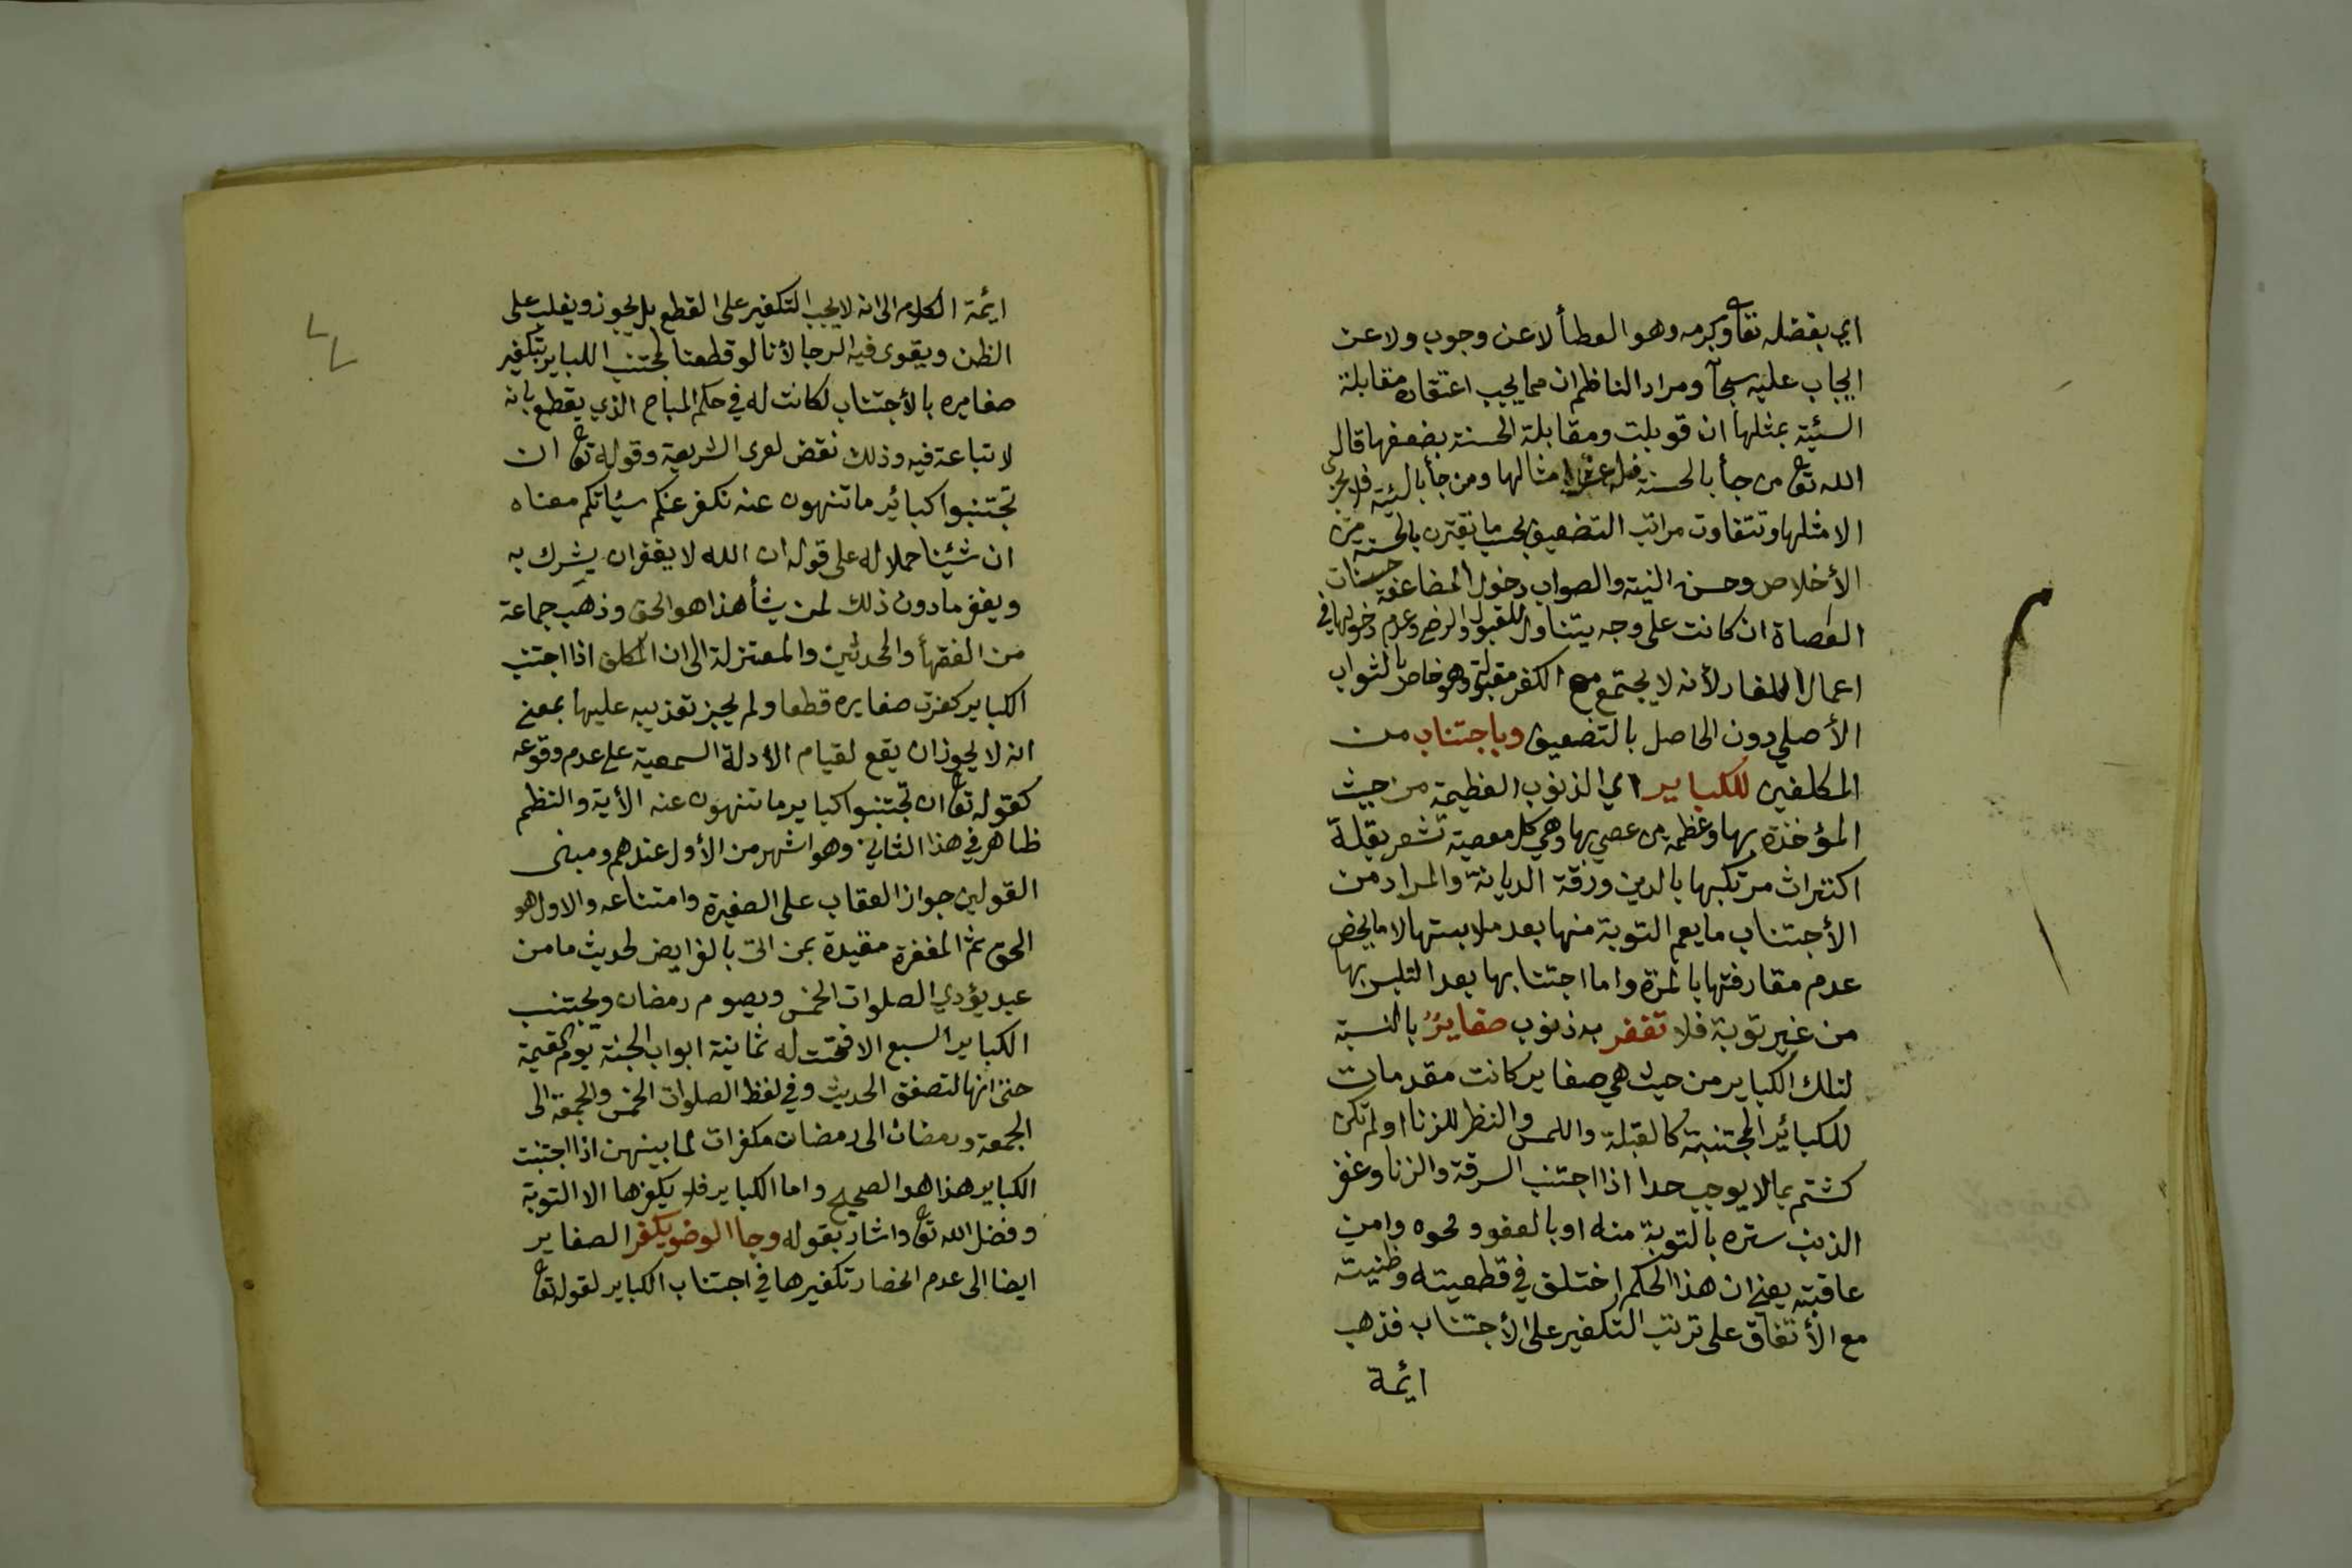 اي بفضله تعا وكرمه وهو العطأ لا عن وجوب ولا عن
ايجاب عليه سبحآ ومراد الناظم ان مما يجب اعتقاده مقابلة
السيئة بمثلها ان قوبلت ومقابلة الحسنة بضعفها قال
الله تعا من جأ بالحسنة فله عشر امثالها ومن جأ بالسيئة فلا يجزى
الا مثلها وتتفاوت مراتب التضعيف بحسب ما يقترن بالحسنة من
الأخلاص وحسن النية والصواب دخول المضاعفة حسنات
العصاة ان كانت على وجه يتناول القبول والرضى وعدم دخولها في
اعمال الكفار لأنه لا يجتمع مع الكفر مقبولة وهو خاص بالثواب
الأصلي دون الحاصل بالتضعيف وباجتناب من
المكلفين للكباير اي الذنوب العظيمة من حيث
المؤخذة بها وعظمة من عصي بها وهي كل معصية تشعر بقلة
اكتراث مرتكبها بالدين ورقة الديانة والمراد من
الأجتناب ما يعم التوبة منها بعد ملابستها لا ما يخص
عدم مقارفتها بالمرة واما اجتنابها بعد التلبس بها
من غير توبة فلا تغفر به ذنوب صغايرُ بالنسبة
لتلك الكباير من حيث هي صغاير كانت مقدمات
للكبائر المجتنبة كالقبلة واللمس والنظر للزنا او لم تكن
كشتم بما لا يوجب حدا اذا اجتنب السرقة والزنا وغفر
الذنب ستره بالتوبة منه او بالعفو ومحوه وامن
عاقبته يعني ان هذا الحكم اختلف في قطعيته وظنيته
مع الأتفاق على ترتب التكفير على الأجتناب فذهب
ايمة
ايمة الكلام الى انه لا يجب التكفير على القطع بل يجوز ويغلب على
الظن ويقوى فيه الرجا لأنا لو قطعنا لمجتنب الكباير بتكفير
صغايره بالأجتناب لكانت له في حكم المباح الذي يقطع بانه
لا تباعة فيه وذلك نقض لعرى الشريعة وقوله تعا ان
تجتنبوا كبائر ما تنهون عنه نكفر عنكم سيأتكم معناه
ان شئنا حملا له على قوله ان الله لا يغفر ان يشرك به
ويغفر ما دون ذلك لمن يشأ هذا هو الحق وذهب جماعة
من الفقهأ والمحدثين والمعتزلة الى ان المكلف اذا اجتنب
الكباير كفرت صغايره قطعا ولم يجز تعذيبه عليها بمعنى
انه لا يجوز ان يقع لقيام الأدلة السمعية على عدم وقوعه
كقوله تعا ان تجتنبوا كباير ما تنهون عنه الأية والنظم
ظاهر في هذا الثاني وهو اشهر من الأول عندهم ومبنى
القولين جواز العقاب على الصغيرة وامتناعه والاول هو
الحق ثم المغفرة مقيدة بمن اتى بالفرايض لحديث ما من
عبد يؤدي الصلوات الخمس ويصوم رمضان ويجتنب
الكباير السبع الا فتحت له ثمانية ابواب الجنة يوم القيمة
حتى انها لتصفق الحديث وفي لفظ الصلوات الخمس والجمعة الى
الجمعة ورمضان الى رمضان مكفرات لما بينهن اذا اجتنبت
الكباير هذا هو الصحيح واما الكباير فلا يكفرها الا التوبة
وفضل الله تعا واشار بقوله وجا الوضو يكفر الصغاير
ايضا الى عدم انحصار تكفيرها في اجتناب الكباير لقوله تعا